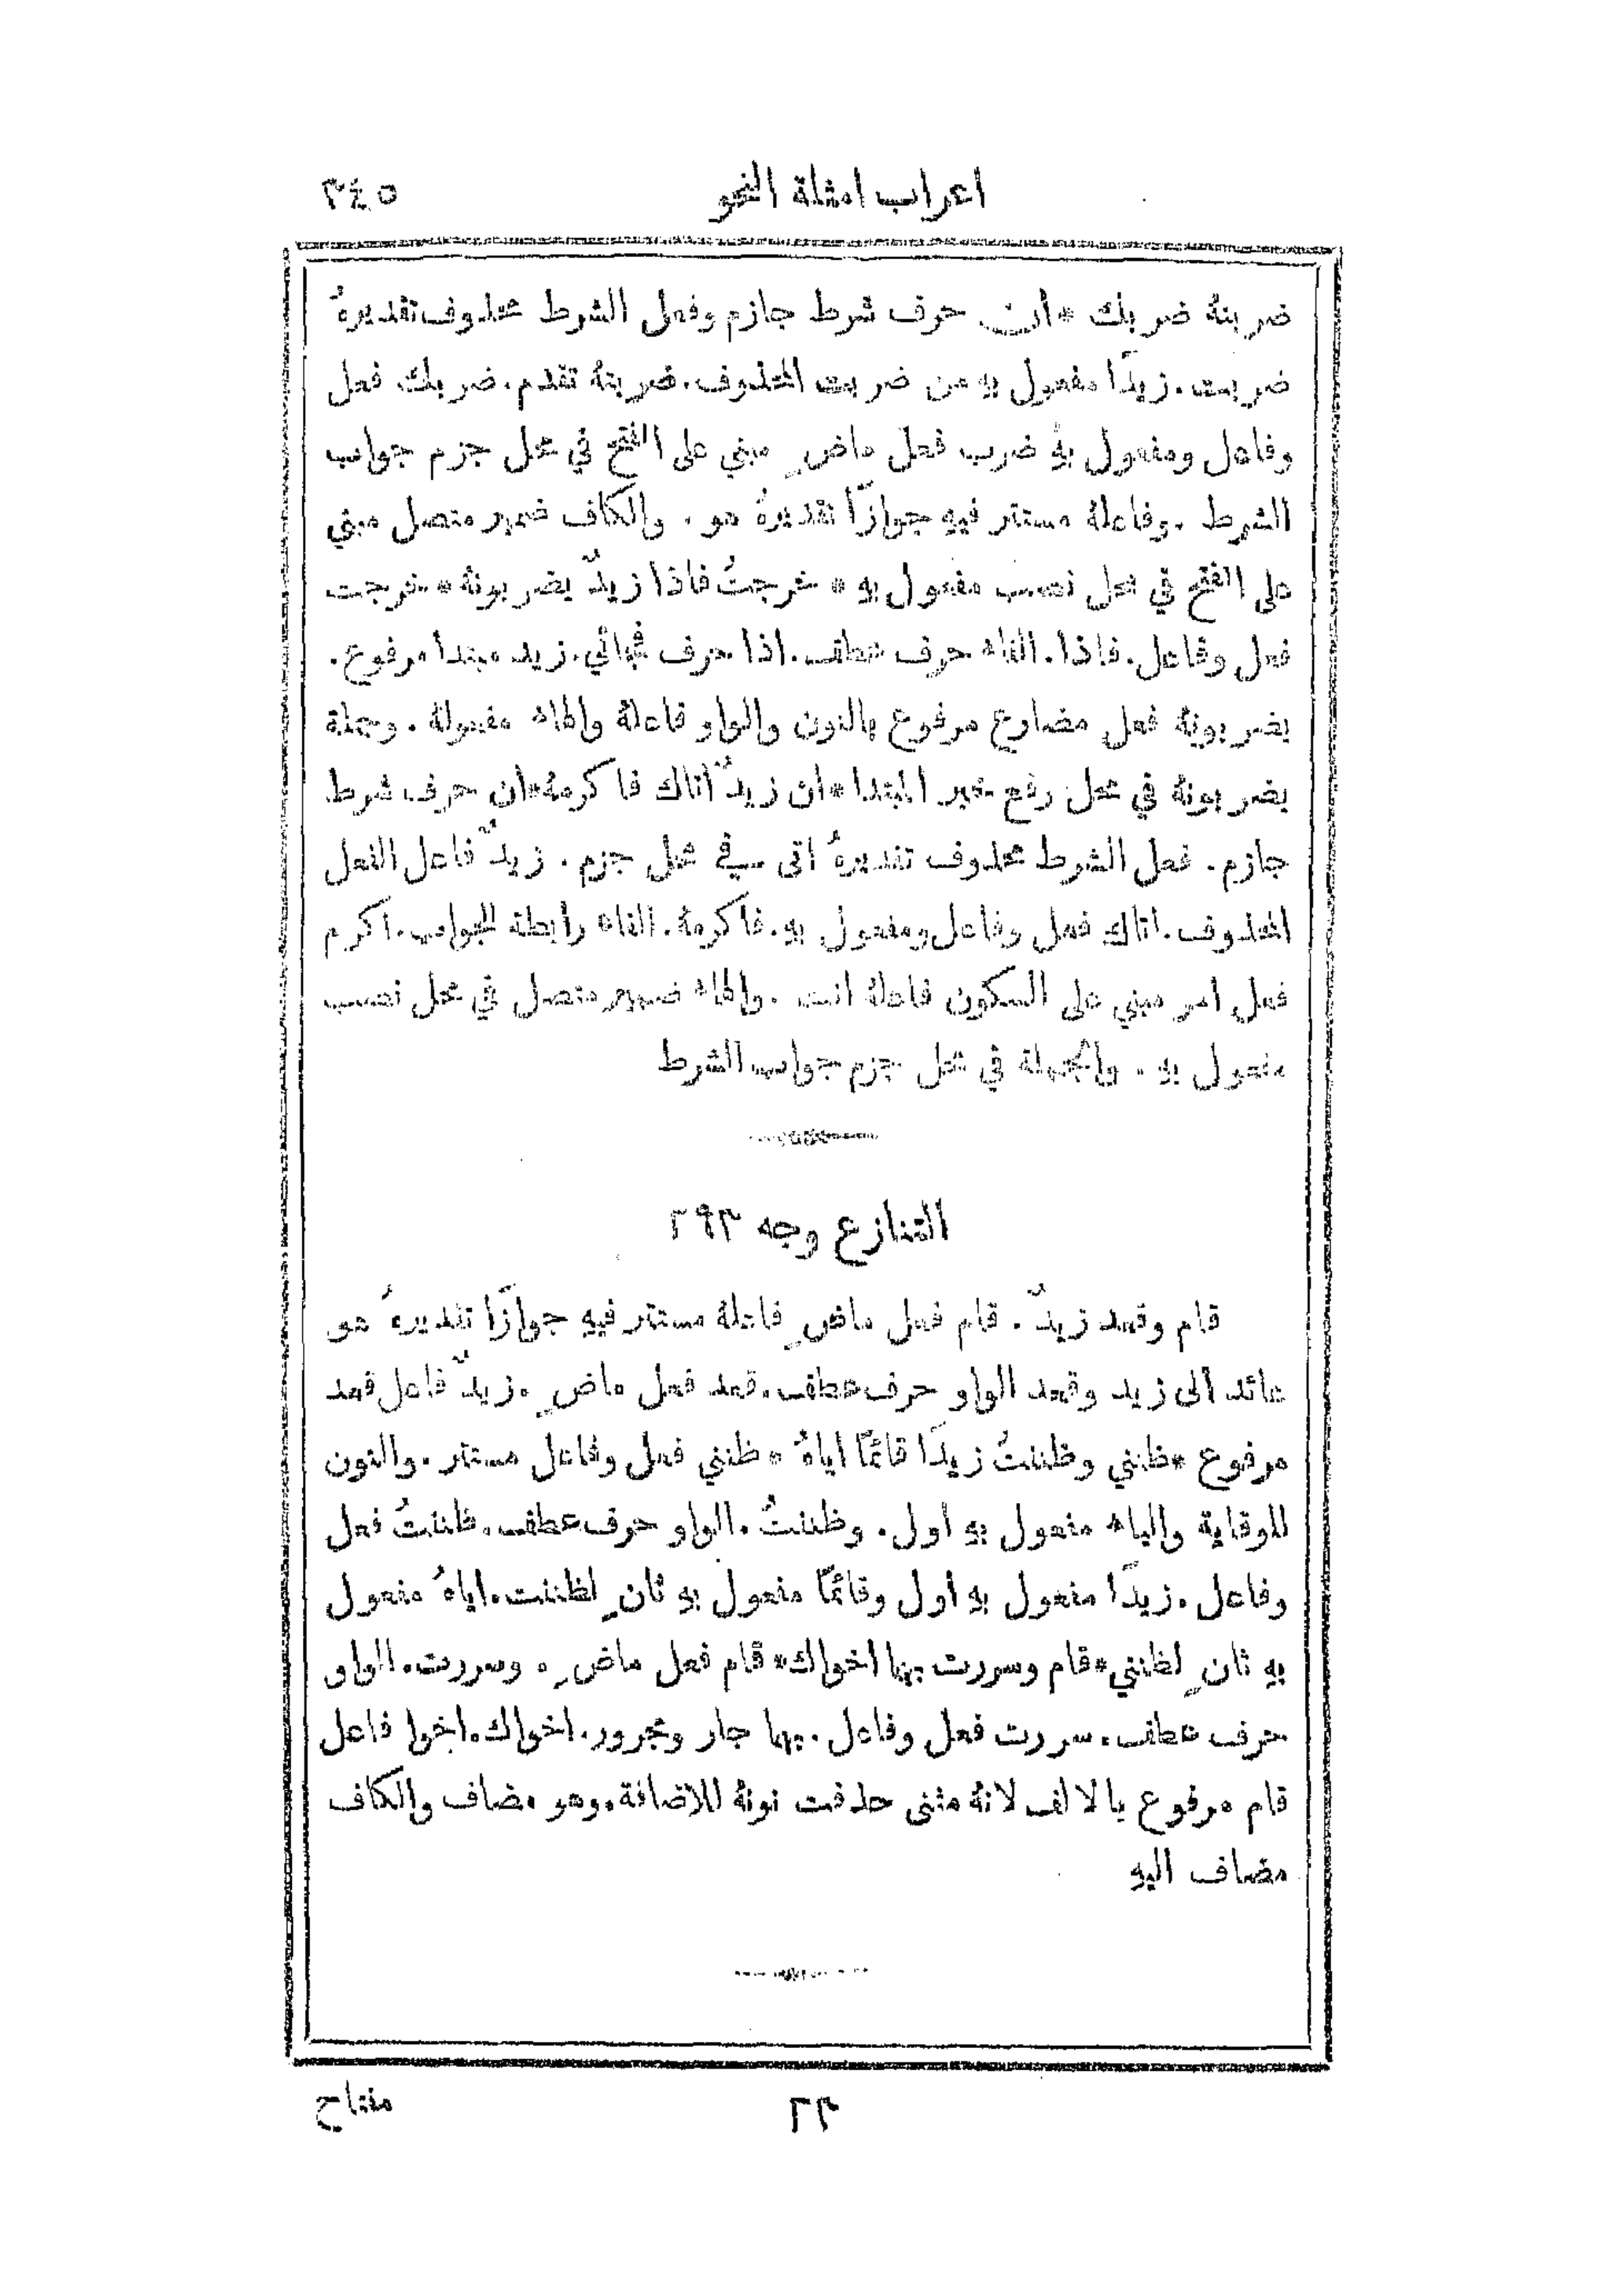 اعراب امثلة النحو ٣٤٥
ضربتهُ ضربك * أن حرف شرط جازم وفعل الشرط محذوف تقديرهُ
ضربت . زيدًا مفعول بهِ من ضربت المحذوف . ضربتهُ تقدم . ضربك فعل
وفاعل ومفعول بهِ ضرب فعل ماضٍ مبني على الفتح في محل جزم جواب
الشرط . وفاعلهُ مستتر فيهِ جوازًا تقديرهُ هو . والكاف ضمير متصل مبني
على الفتح في محل نصب مفعول بهِ * خرجتُ فاذا زيدٌ يضربونهُ * خرجت
فعل وفاعل . فاذا . الفاء حرف عطف . اذا حرف فجائي . زيد مبتدا مرفوع .
يضربونهُ فعل مضارع مرفوع بالنون والواو فاعلهُ والهاء مفعولهُ . وجملة
يضربونهُ في محل رفع خبر المبتدا * ان زيدٌ أتاك فاكرمهُ * ان حرف شرط
جازم . فعل الشرط محذوف تقديرهُ اتى في محل جزم . زيدٌ فاعل الفعل
المحذوف . اتاك فعل وفاعل ومفعول بهِ . فاكرمهُ . الفاء رابطة للجواب . اكرم
فعل امر مبني على السكون فاعلهُ انت . والهاء ضمير متصل في محل نصب
مفعول بهِ . والجملة في محل جزم جواب الشرط
التنازع وجه ٢٩٣
قام وقعد زيدٌ . قام فعل ماضٍ فاعلهُ مستتر فيهِ جوازًا تقديرهُ هو
عائد الى زيد وقعد الواو حرف عطف . قعد فعل ماضٍ . زيدٌ فاعل قعد
مرفوع * ظنني وظننتُ زيدًا قائمًا اياهُ * ظنني فعل وفاعل مستتر . والنون
للوقاية والياء مفعول بهِ اول . وظننتُ . الواو حرف عطف . ظننتُ فعل
وفاعل . زيدًا مفعول بهِ أول وقائمًا مفعول بهِ ثانٍ لظننت . اياهُ مفعول
بهِ ثانٍ لظنني * قام وسررت بهما اخواك * قام فعل ماضٍ . وسررت . الواو
حرف عطف . سررت فعل وفاعل . بهما جار ومجرور . اخواك . اخوا فاعل
قام مرفوع بالالف لانهُ مثنى حذفت نونهُ للاضافة . وهو مضاف والكاف
مضاف اليهِ
٢٣ مفتاح